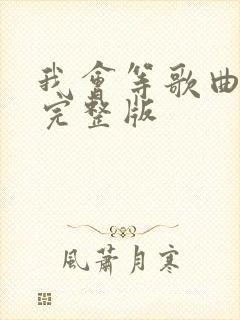 我會等歌曲
完整版
風蕭月寒